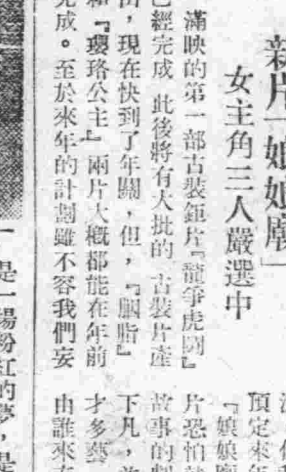 新片「娘娘廟」
女主角三人嚴選中
滿映的第一部古裝鉅片『龍爭虎鬪』
已經完成 此後將有大批的 古裝片產
出,現在快到了年關,但,『胭脂』
和『瓔珞公主』兩片大概都能在年前
完成。至於來年的計劃雖不容我們妄
預定來
『娘娘廟
片恐怕
故事的
下凡,
才多藝
由誰來
是一場粉紅的夢,是